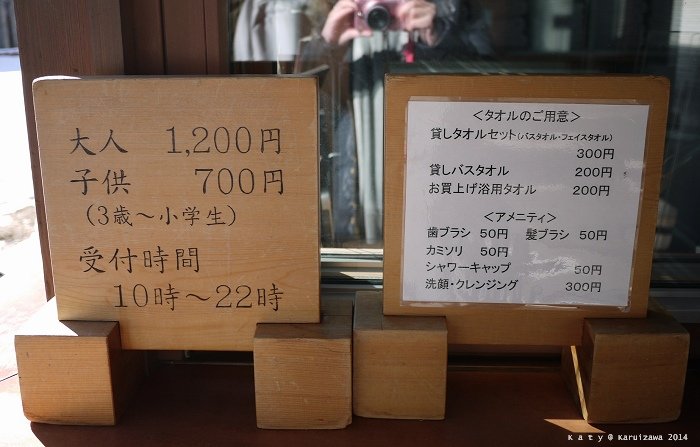 大人 1,200円
子供 700円
(3歳～小学生)
受付時間
10時～22時
＜タオルのご用意＞
貸しタオルセット(バスタオル・フェイスタオル)
300円
貸しバスタオル 200円
お買上げ浴用タオル 200円
＜アメニティ＞
歯ブラシ 50円 髪ブラシ 50円
カミソリ 50円
シャワーキャップ 50円
洗顔・クレンジング 300円
Katy @ Karuizawa 2014